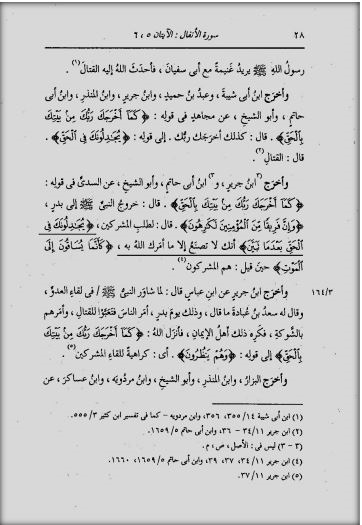 ٢٨ سورة الأنفال : الآيتان ٥ ، ٦
رسول اللهِ ﷺ يريدُ غَنيمةً مع أبى سفيانَ ، فأحدَث اللهُ إليه القتالَ(١) .
وأخرَج ابنُ أبى شيبةَ ، وعبدُ بنُ حميدٍ ، وابنُ جريرٍ ، وابنُ المنذرِ ، وابنُ أبى
حاتمٍ ، وأبو الشيخِ ، عن مجاهدٍ فى قوله : ﴿ كَمَآ أَخْرَجَكَ رَبُّكَ مِنْ بَيْتِكَ
بِالْحَقِّ ﴾ . قال : كذلك أخرَجك ربُّك . إلى قوله : ﴿ يُجَٰدِلُونَكَ فِى الْحَقِّ ﴾ .
قال : القتالِ(٢) .
وأخرَج (٣ابنُ جريرٍ ، و٣) ابنُ أبى حاتمٍ ، وأبو الشيخِ ، عن السدىِّ فى قوله :
﴿ كَمَآ أَخْرَجَكَ رَبُّكَ مِنْ بَيْتِكَ بِالْحَقِّ ﴾ . قال : خروجُ النبىِّ ﷺ إلى بدرٍ ،
﴿ وَإِنَّ فَرِيقًا مِّنَ الْمُؤْمِنِينَ لَكَٰرِهُونَ ﴾ . قال : لطلبِ المشركين ، ﴿ يُجَٰدِلُونَكَ فِى
الْحَقِّ بَعْدَمَا تَبَيَّنَ ﴾ أنك لا تصنَعُ إلا ما أمَرك اللهُ به ، ﴿ كَأَنَّمَا يُسَاقُونَ إِلَى
الْمَوْتِ ﴾ حينَ قيل : هم المشركون(٤) .
١٦٤/٣ وأخرَج ابنُ جريرٍ عن ابنِ عباسٍ قال : لما شاوَر النبىُّ ﷺ فى لقاءِ العدوِّ ،
وقال له سعدُ بنُ عُبادةَ ما قال ، وذلك يومَ بدرٍ ، أمَر الناسَ فتعَبَّوْا للقتالِ ، وأمَرهم
بالشوكةِ ، فكَرِه ذلك أهلُ الإيمانِ ، فأنزَل اللهُ : ﴿ كَمَآ أَخْرَجَكَ رَبُّكَ مِنْ بَيْتِكَ
بِالْحَقِّ ﴾ إلى قوله : ﴿ وَهُمْ يَنظُرُونَ ﴾ . أى : كراهيةً للقاءِ المشركين(٥) .
وأخرَج البزارُ ، وابنُ المنذرِ ، وأبو الشيخِ ، وابنُ مردُويَه ، وابنُ عساكرَ ، عن
(١) ابن أبى شيبة ١٤/ ٣٥٥، ٣٥٦، وابن مردويه - كما فى تفسير ابن كثير ٣/ ٥٥٥.
(٢) ابن جرير ١١/ ٣٤ - ٣٦، وابن أبى حاتم ٥/ ١٦٥٩.
(٣ - ٣) ليس فى : الأصل ، ص ، م .
(٤) ابن جرير ١١/ ٣٤، ٣٧، ٣٩، وابن أبى حاتم ٥/ ١٦٥٩، ١٦٦٠.
(٥) ابن جرير ١١/ ٣٧.